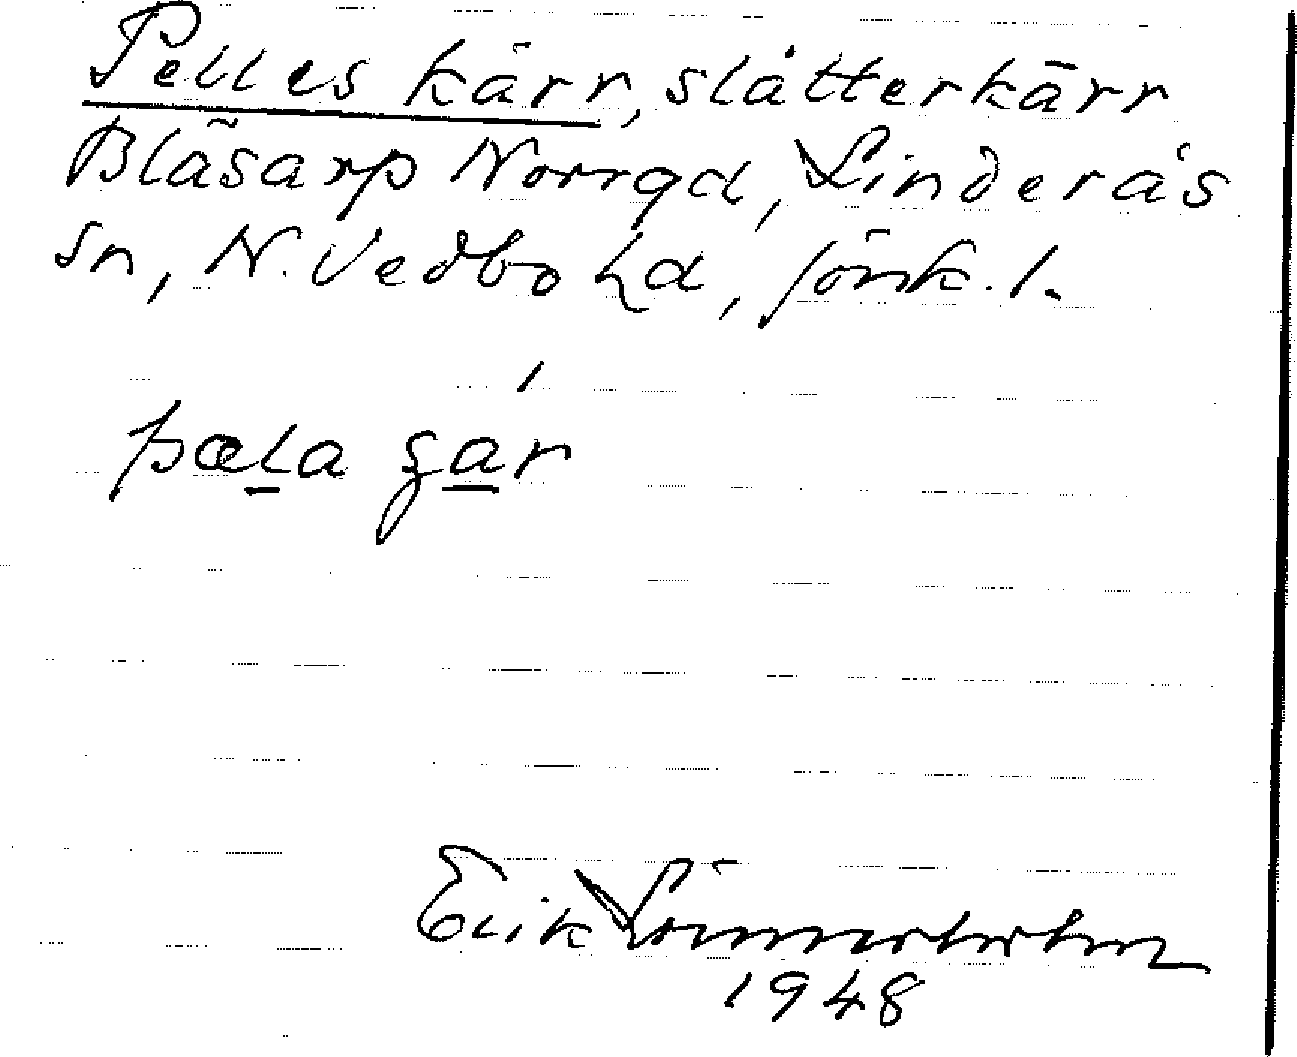 Pelles kärr, slåtterkärr
Blåsarp Norrgd, Linderås
sn, N. Vedbo hd, Jönk. l.
pæla ʒar
Erik Lönnerholm
1948